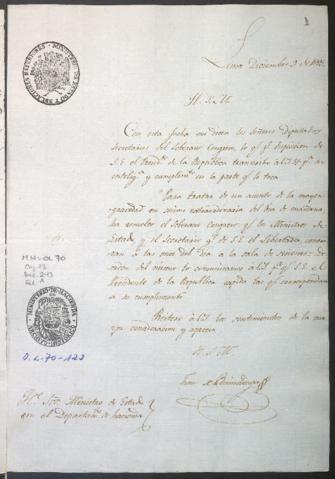 1
Lima Diciembre 9 de 182
H. S. M.
Con esta fecha me dicen los Señores Diputados
Secretarios del Soberano Congreso, lo q.e p.r disposicion de
S. E. el Presid.te de la República transcribo á V.S. p.a su
intelig.a y cumplim.to en la parte q.e le toca
"Para tratar de un asunto de la mayor
gravedad en sesion extraordinaria del dia de mañana
ha resuelto el Soberano Congreso q.e los Ministros de
Estado, y el Secretario g.l de S. E. el Libertador,
á las once del dia á la sala de sesiones: De
orden del mismo lo comunicamos á V.S. p.a q.e S. E. el
Presidente de la República expida las q.e correspondan
a su cumplimiento"
Reitero á V.S. los sentimientos de la ma
yor consideracion y aprecio
H. S. M.
H. Sor. Ministro de Estado
en el Departam.to de hacienda
O.L. 70
O.L. 70-123